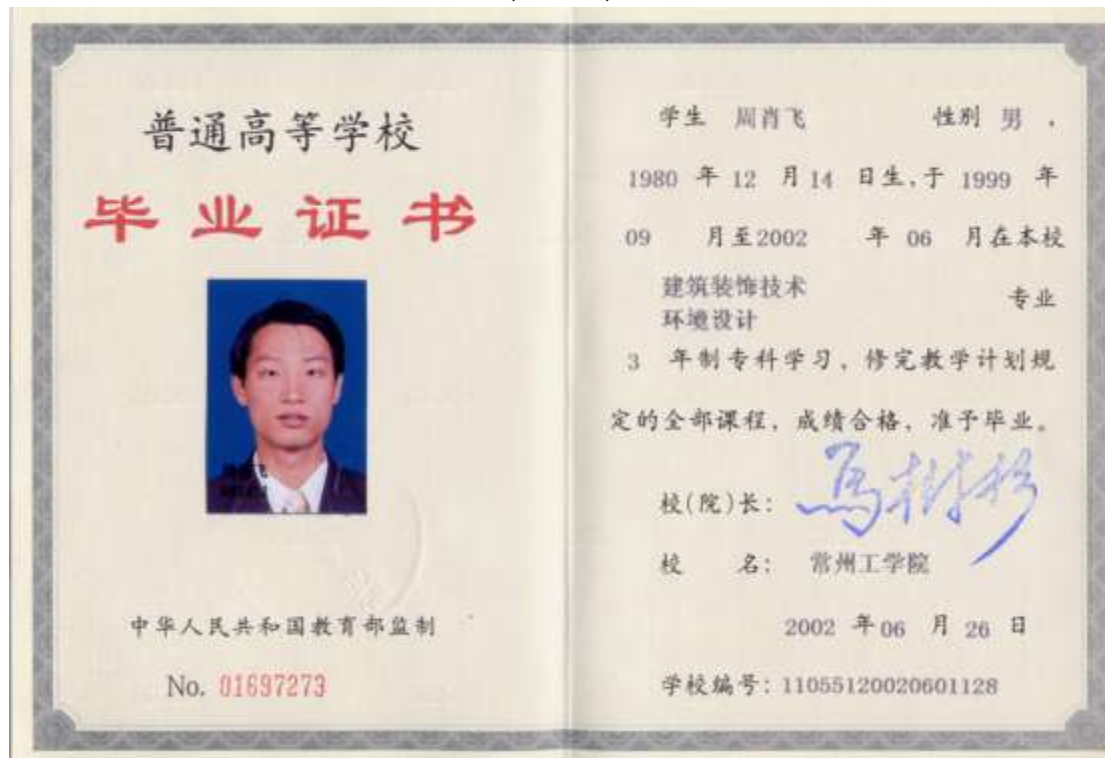 普通高等学校
毕业证书
中华人民共和国教育部监制
No. 01697273
学生 周肖飞 性别 男 ,
1980 年 12 月 14 日生,于 1999 年
09 月至2002 年 06 月在本校
建筑装饰技术
环境设计 专业
3 年制专科学习、修完教学计划规
定的全部课程,成绩合格,准予毕业。
校(院)长:
校 名: 常州工学院
2002 年 06 月 26 日
学校编号:11055120020601128